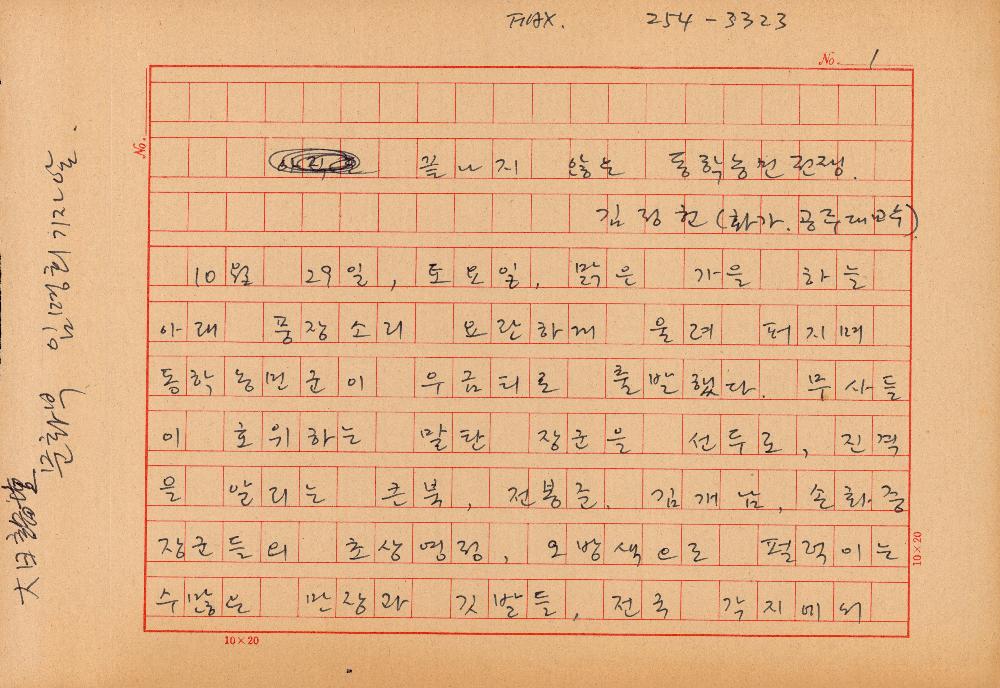 FAX. 254-3323
No. 1
No.
끝나지 않는 동학농민전쟁.
김정헌 (화가. 공주대교수)
10월 29일, 토요일, 맑은 가을 하늘
아래 풍장소리 요란하게 울려 퍼지며
동학농민군이 우금티로 출발했다. 무사들
이 호위하는 말탄 장군을 선두로, 진격
을 알리는 큰북, 전봉준. 김개남, 손화중
장군들의 초상영정, 오방색으로 펄럭이는
수많은 만장과 깃발들, 전국 각지에서
10×20
10×20
문화부 기자앞.